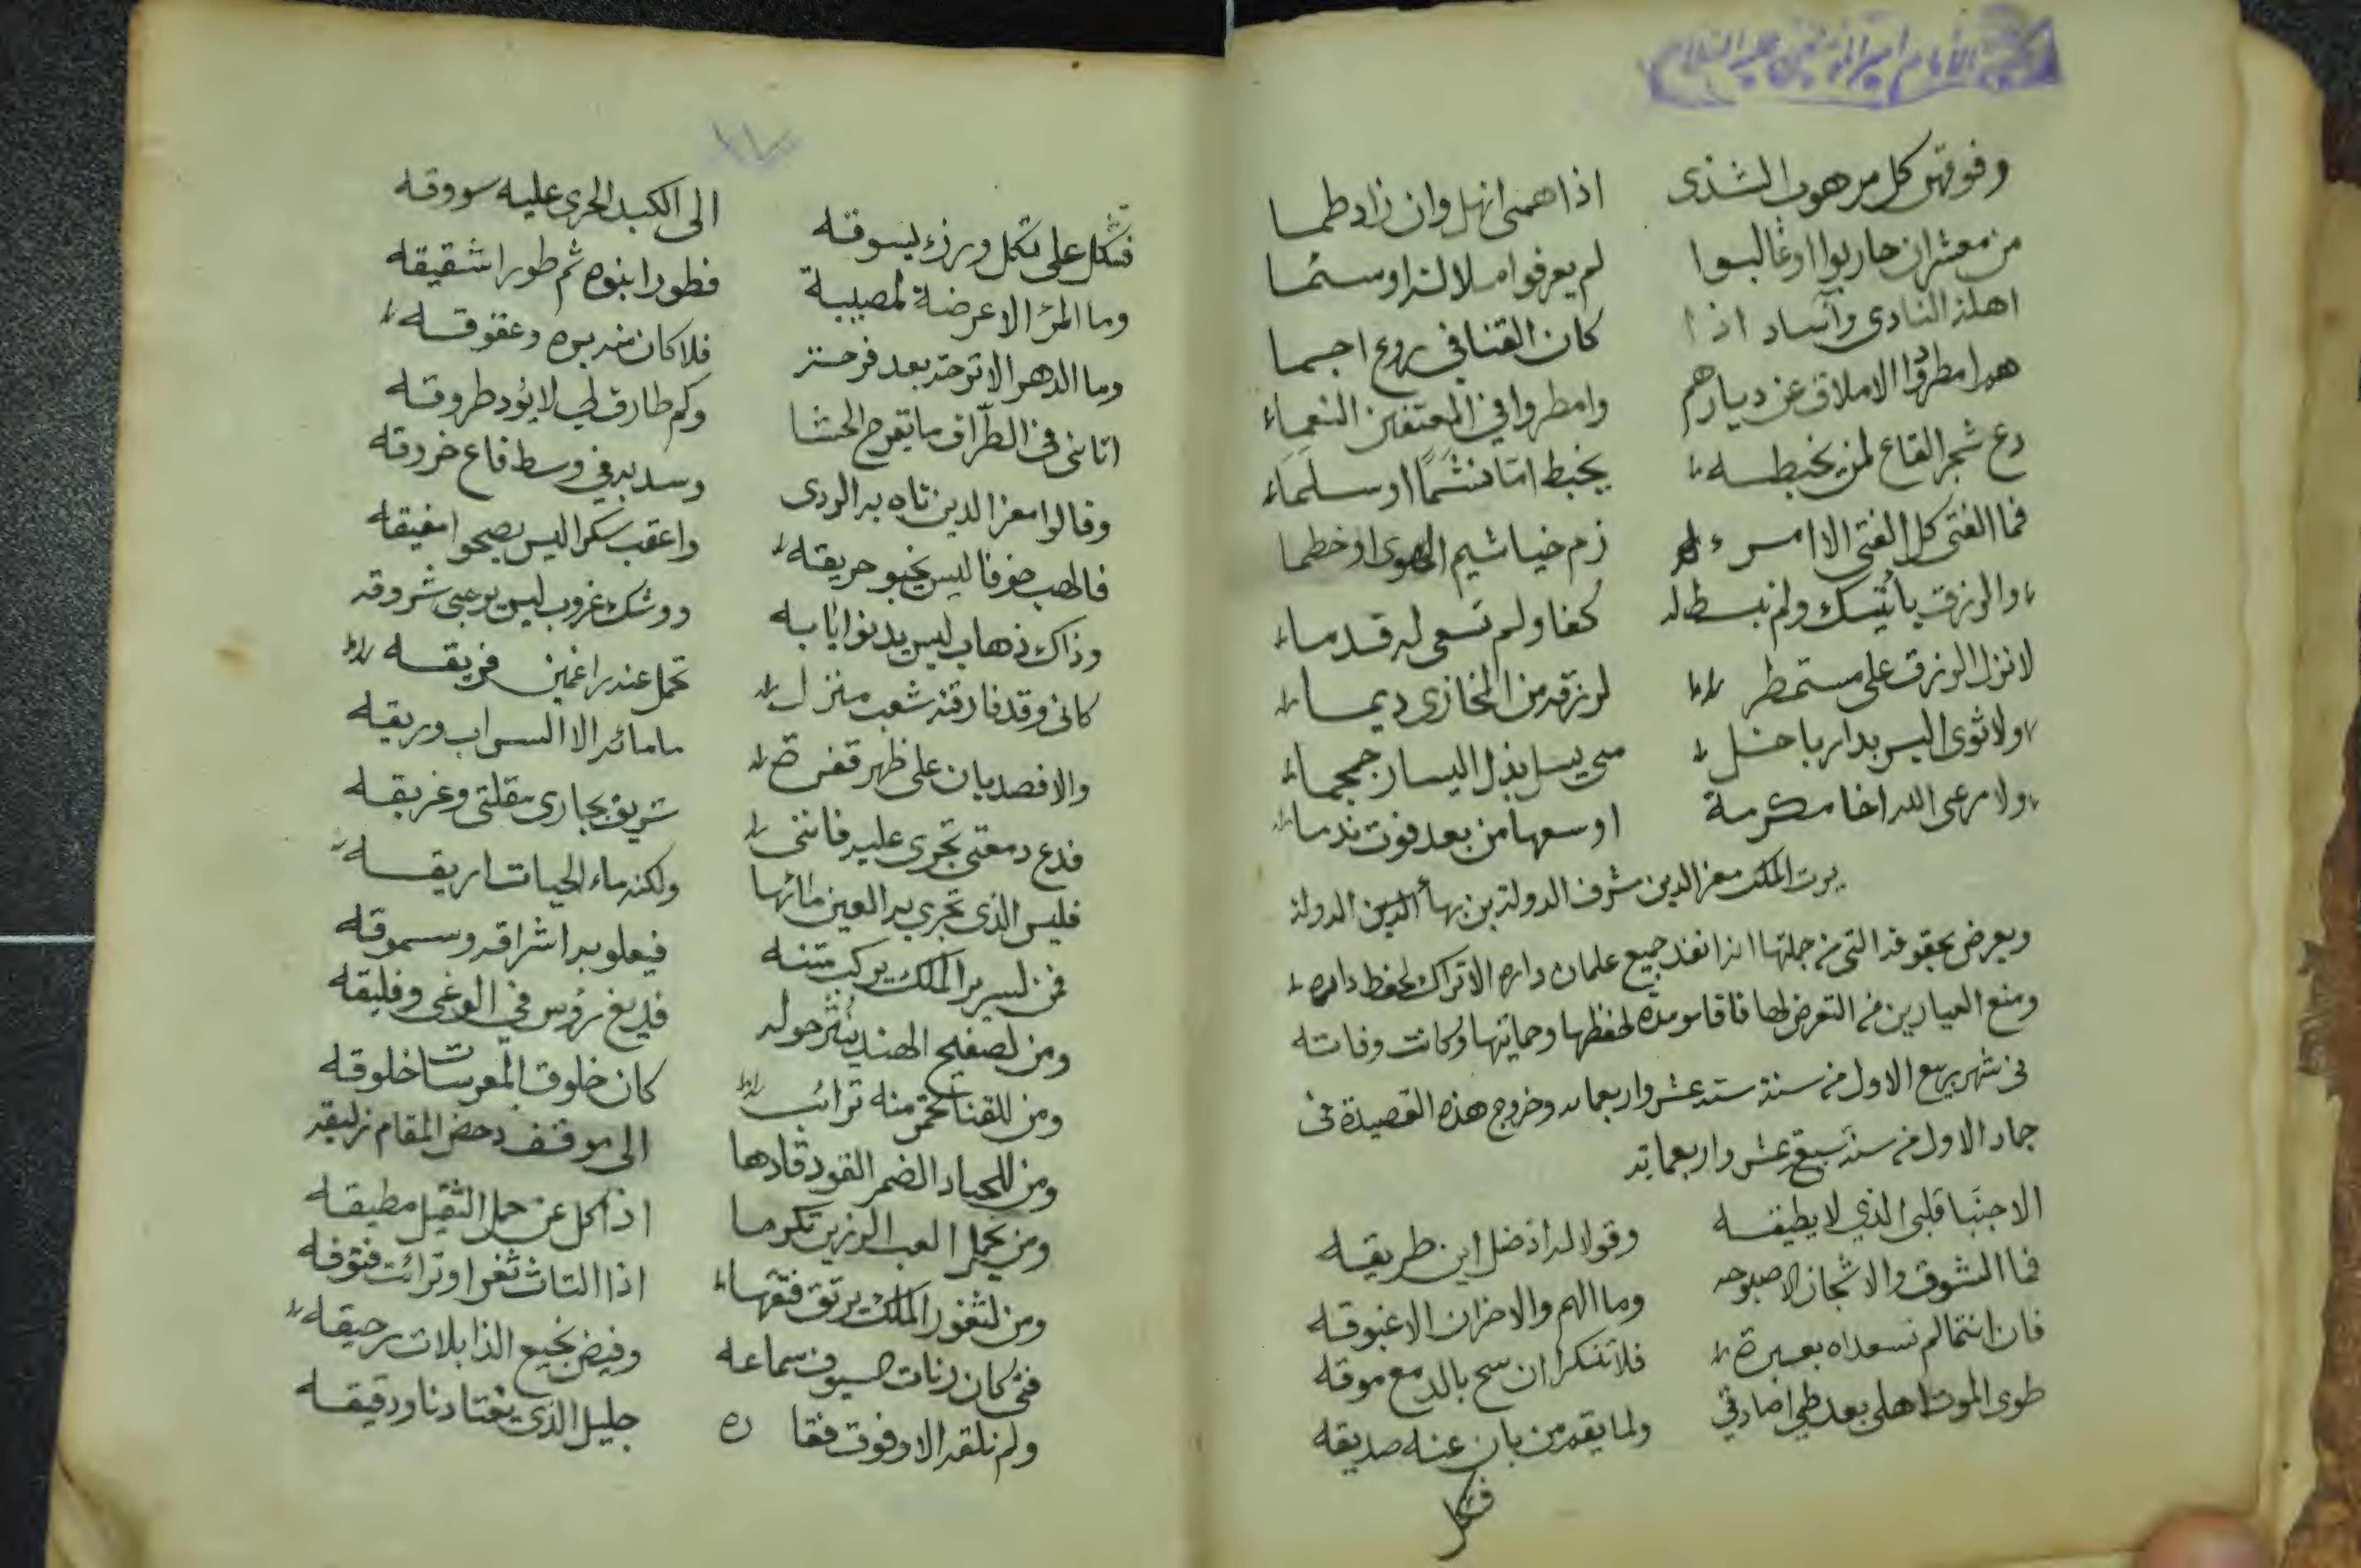 وفوقهن كل مرهوب الشذى اذا همى انهل وان زاد طما
من معشر ان حاربوا او غالبوا لم يعرفوا ملالة او سئما
اهلة النادى وآساد اذا كان القنا في روع اجما
هم امطرقوا الاملاق عن ديارهم وامطروا في المعتفين النعماء
دع شجر القاع لمن يخبطه يخبط اما فنشما او سلماء
فما الفتى كل الفتى الا امرء زم خياشيم الهوى او خطما
والرزق يأتيك ولم تبسط له كفا ولم تسعى له قدما
لا نزل الرزق على مستمطر لرزقه من المخازى ديما
ولا ثوى اليسر بدار باخل متى يسل بذل اليسار جمجما
ولا رعى الله اخا مكرمة اوسعها من بعد فوت ندما
يرث الملك معز الدين مشرف الدولة بن بهاء الدين الدولة
ويعرض بحقوقه التى من جملتها انه انفذ جميع غلمان داره الاتراك لحفظ داره
ومنع العيارين من التعرض لها فاقاموا مدة لحفظها وحمايتها وكانت وفاته
فى شهر ربيع الاول من سنة ستة عشر واربعمائه وخروج هذه القصيدة فى
جماد الاول من سنة سبع عشر واربعمائة
الا جنبا قلبى الذي لا يطيقه وقولا له اذ ضل اين طريقه
فما الشوق والاشجان الا صبوحه وما الهم والاحزان الا غبوقه
فان انتما لم تسعداه بعبرة فلا تنكرا ان سح بالدمع موقه
طوى الموت اهلى بعد طي اصادقي ولما يقم من بان عنه صديقه
فثكل
فثكل على ثكل ورزء يسوقه الى الكبد الحرى عليه سووقه
وما المرء الا عرضة لمصيبة فطورا ابنوه ثم طورا شقيقه
وما الدهر الا ترحة بعد فرحة فلا كان منه بره وعقوقه
اتانى فى الطراق ما يقرح الحشا وكم طارق لي لا يؤد طروقه
وقالوا معز الدين تاه به الردى وسد به في وسط قاع خروقه
فالهب خوفا ليس يخبو حريقه واعقب سكرا ليس يصحو مفيقه
وذاك ذهاب ليس يدنو ايابه ووشك غروب ليس يرجى شروقه
كانى وقد فارقته شعب منزل تحمل عنه راغمين فريقه
والا فصديان على ظهر قفرة ما مائه الا السراب وريقه
فدع دمعتى تجرى عليه فاننى شريق بجارى مقلتى وغريقه
فليس الذى تجري به العين مائها ولكنه ماء الحيات اريقه
فمن لسرير الملك يركب متنه فيعلو به اشراقه وسموقه
ومن لصفيح الهند ينثر حوله فديغ رؤس في الوغى وفليقه
ومن للقنا تحمر منه ترائب كان خلوق المعرسات خلوقه
ومن للجياد الضمر القود قادها الى موقف دحض المقام زليقه
ومن يحمل العبء الرزين تكرما اذا كل عن حمل الثقيل مطيقه
ومن لثغور الملك يرتق فتقها اذا التاث ثغر او ترائت فتوقه
فتى كان رنات السيوف سماعه وفيض نجيع الذابلات رحيقه
ولم نلقه الا وفوت فقاره جليل الذى يغتادنا ودقيقه